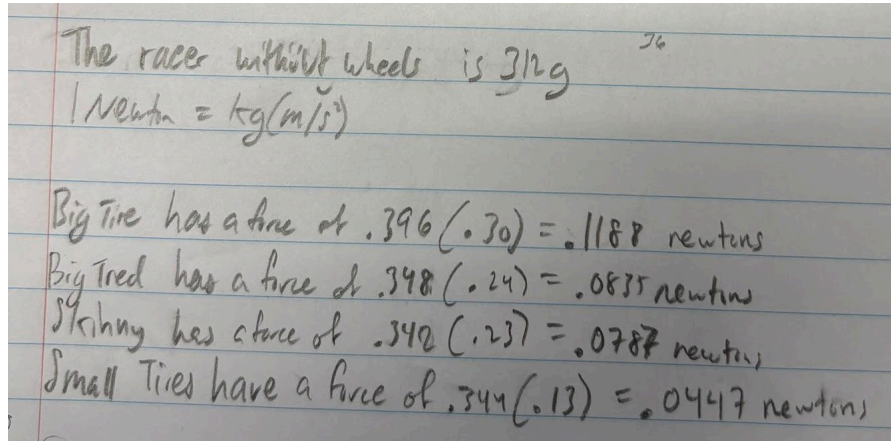 36
The racer without wheels is 312g
1 Newton = kg(m/s²)
Big Tire has a force of .396 (.30) = .1188 newtons
Big Tred has a force of .348 (.24) = .0835 newtons
Skinny has a force of .342 (.23) = .0787 newtons
Small Tires have a force of .344 (.13) = .0447 newtons